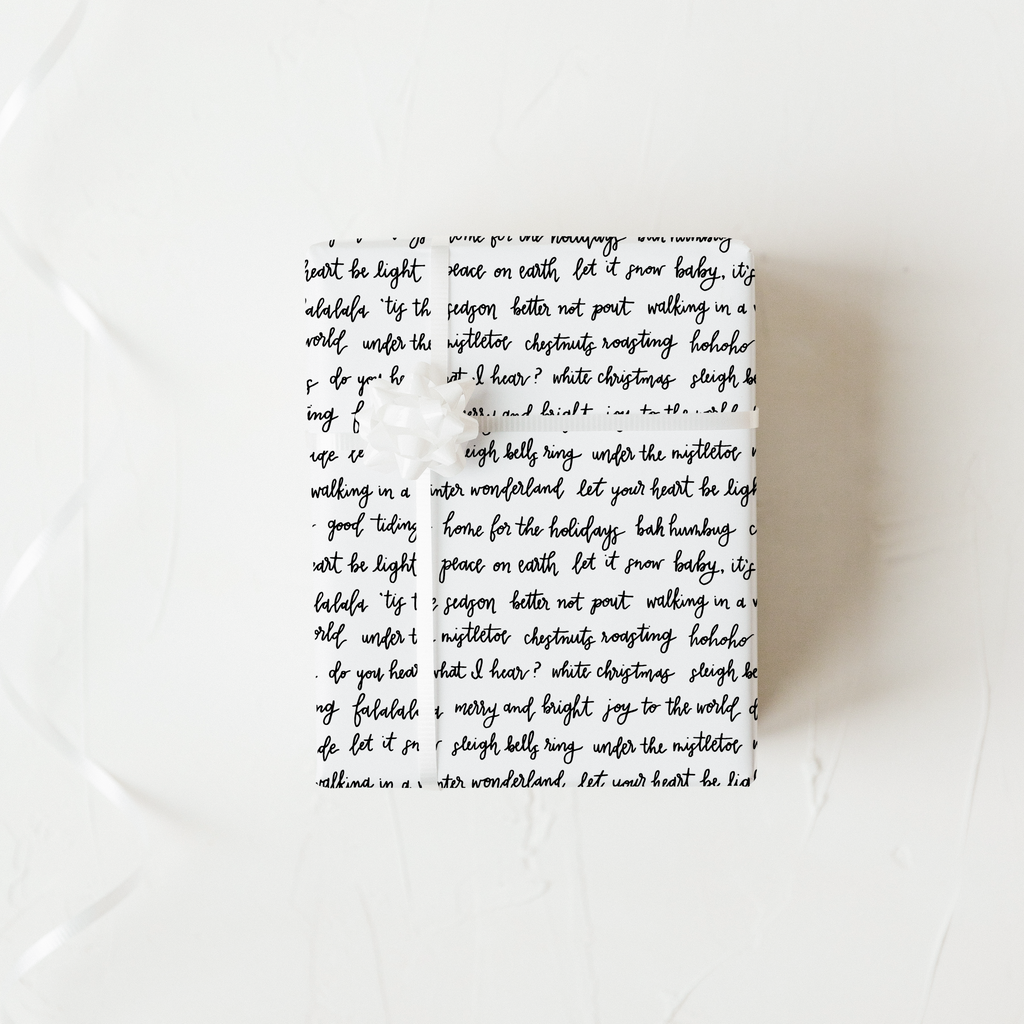 home for the holidays bah humbug
heart be light peace on earth let it snow baby, it's
alalala 'tis the season better not pout walking in a
world under the mistletoe chestnuts roasting hohoho
do you he what I hear? white christmas sleigh be
ing merry and bright joy to the world
eigh bells ring under the mistletoe
walking in a inter wonderland let your heart be ligh
good tiding home for the holidays bah humbug c
eart be light peace on earth let it snow baby, it's
lalala 'tis the season better not pout walking in a
orld under t mistletoe chestnuts roasting hohoho
do you hear what I hear? white christmas sleigh be
ng falalala merry and bright joy to the world d
de let it sn sleigh bells ring under the mistletoe
walking in a inter wonderland let your heart be lig